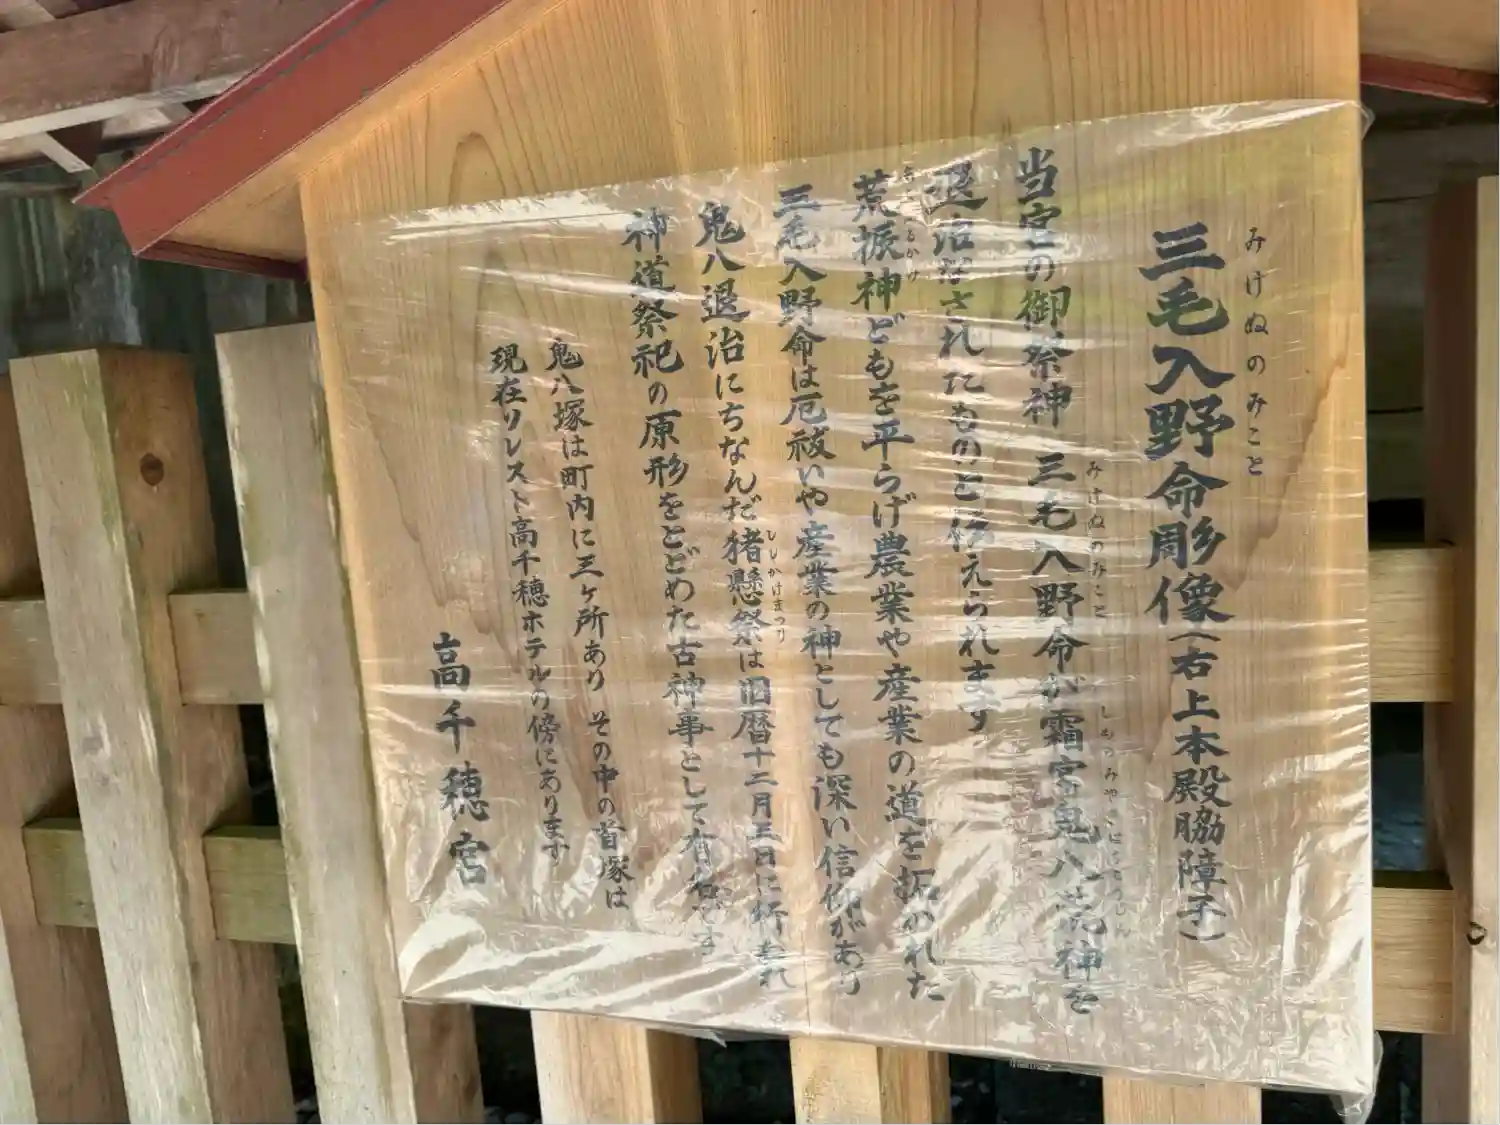 三毛入野命彫像（右上本殿脇障子）
みけぬのみこと
当宮の御祭神 三毛入野命が霜宮鬼八荒神を
みけぬのみこと
退治なされたものと伝えられます
荒振神どもを平らげ農業や産業の道を拓かれた
三毛入野命は厄祓いや産業の神としても深い信仰があり
鬼八退治にちなんだ猪懸祭は旧暦十二月三日に行われ
ししかけまつり
神道祭祀の原形をとどめた古神事として有名です
鬼八塚は町内に三ヶ所あり その中の首塚は
現在リレスト高千穂ホテルの傍にあります
高千穂宮